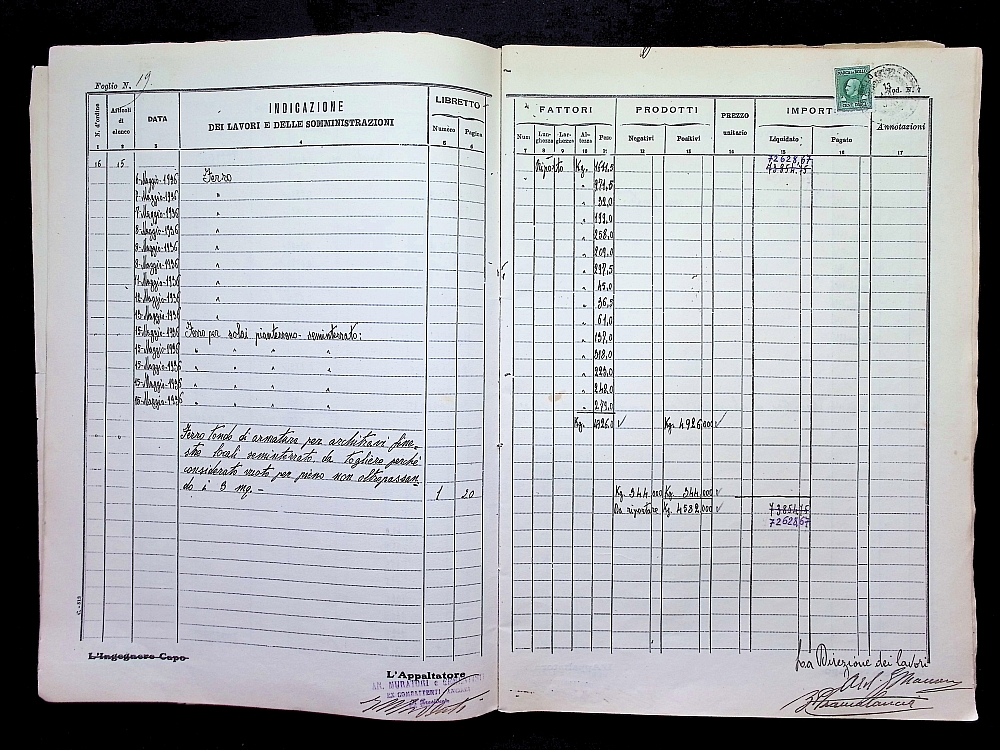 Foglio N. 19.
N. d'ordine
Articoli di elenco
DATA
INDICAZIONE
DEI LAVORI E DELLE SOMMINISTRAZIONI
LIBRETTO
Numero
Pagina
1 2 3 4 5 6
16 15
6-Maggio-1936 Ferro
7-Maggio-1936 "
7-Maggio-1936 "
8-Maggio-1936 "
8-Maggio-1936 "
8-Maggio-1936 "
11-Maggio-1936 "
12-Maggio-1936 "
13-Maggio-1936 "
15-Maggio-1936 Ferro per solai pianterreno-seminterrato:
15-Maggio-1936 " " " "
15-Maggio-1936 " " " "
25-Maggio-1936 " " " "
25-Maggio-1936 " " " "
" " Ferro tondo di armatura per architravi fine-
stre locali seminterrato da togliere perché
considerato vuoto per pieno non oltrepassan-
do i 3 mq. - 1 20
C. - 813
L'Ingegnere Capo
L'Appaltatore
EX COMBATTENTI - ANCONA
Il Presidente
Mod. N. 4
FATTORI
PRODOTTI
PREZZO
unitario
Num
Lun-ghezza
Lar-ghezza
Al-tezza
Peso
Negativi
Positivi
Liquidato
Pagato
Annotazioni
7 8 9 10 11 12 13 14 15 16 17
72628,67
Riporto Kg. 1641,5 73854,75
271,5
" 32,0
" 192,0
" 258,0
" 202,0
" 297,5
" 45,0
" 36,5
" 61,0
" 197,0
" 318,0
" 223,0
" 248,0
" 279,0
Kg. 4926,0 Kg. 4926,000
Kg. 344,000 Kg. 344,000
Da riportare Kg. 4582,000 73854,75
72628,67
La Direzione dei lavori